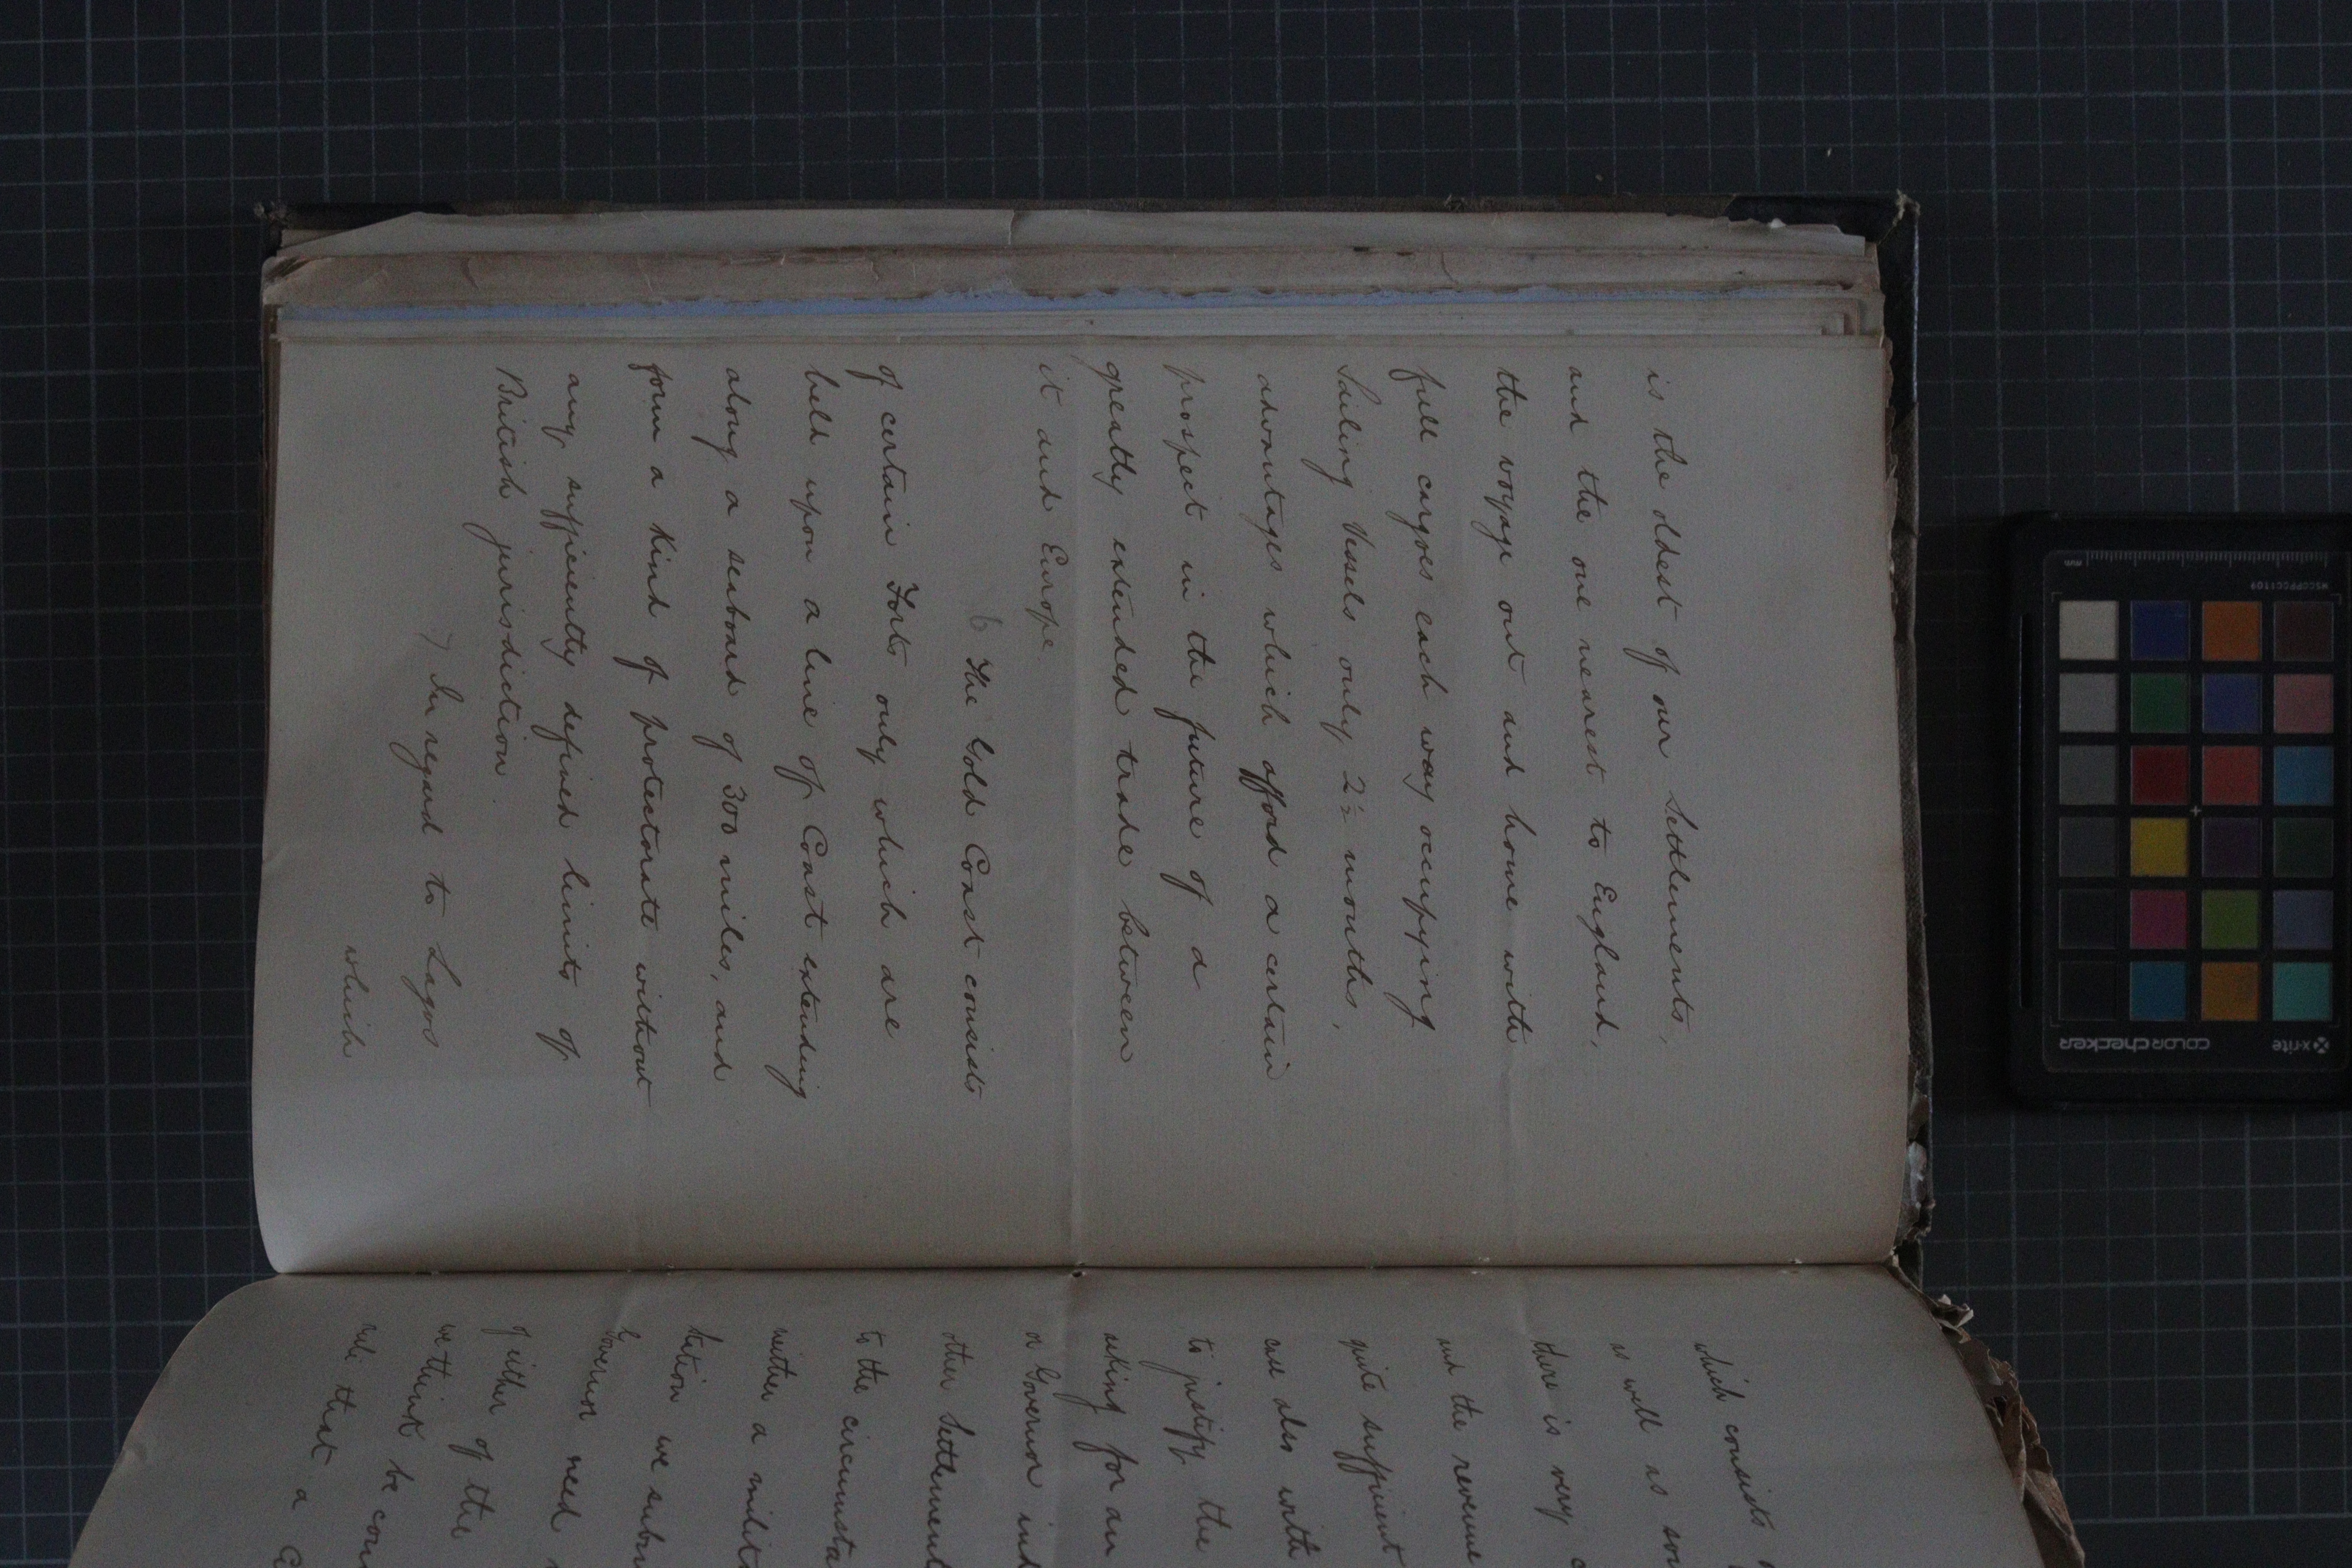 is the oldest of our Settlements,
and the one nearest to England,
the voyage out and home with
full cargoes each way occupying
Sailing Vessels only 2½ months,
advantages which afford a certain
prospect in the future of a
greatly extended trade between
it and Europe.
6 The Gold Coast consists
of certain Forts only which are
held upon a line of Coast extending
along a seaboard of 300 miles, and
form a kind of protectorate without
any sufficiently defined limits of
British jurisdiction.
7 In regard to Lagos
which
which consists
as well as
there is very
and the revenue
quite sufficient
case also with
to justify the
asking for an
or Governor
other Settlement
to the
neither a
we
Governor need
of either of the
we think be
rule that a
x-rite
colorchecker
MSCCPPCC1109
mm